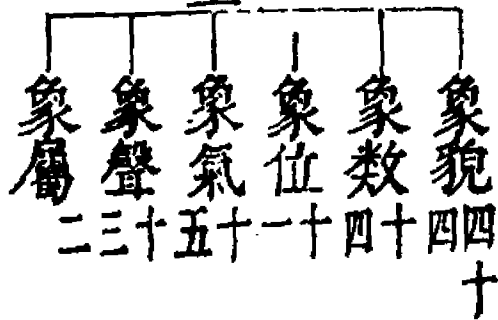 象貌四十四
象数十四
象位十一
象氣十五
象聲十三
象屬二